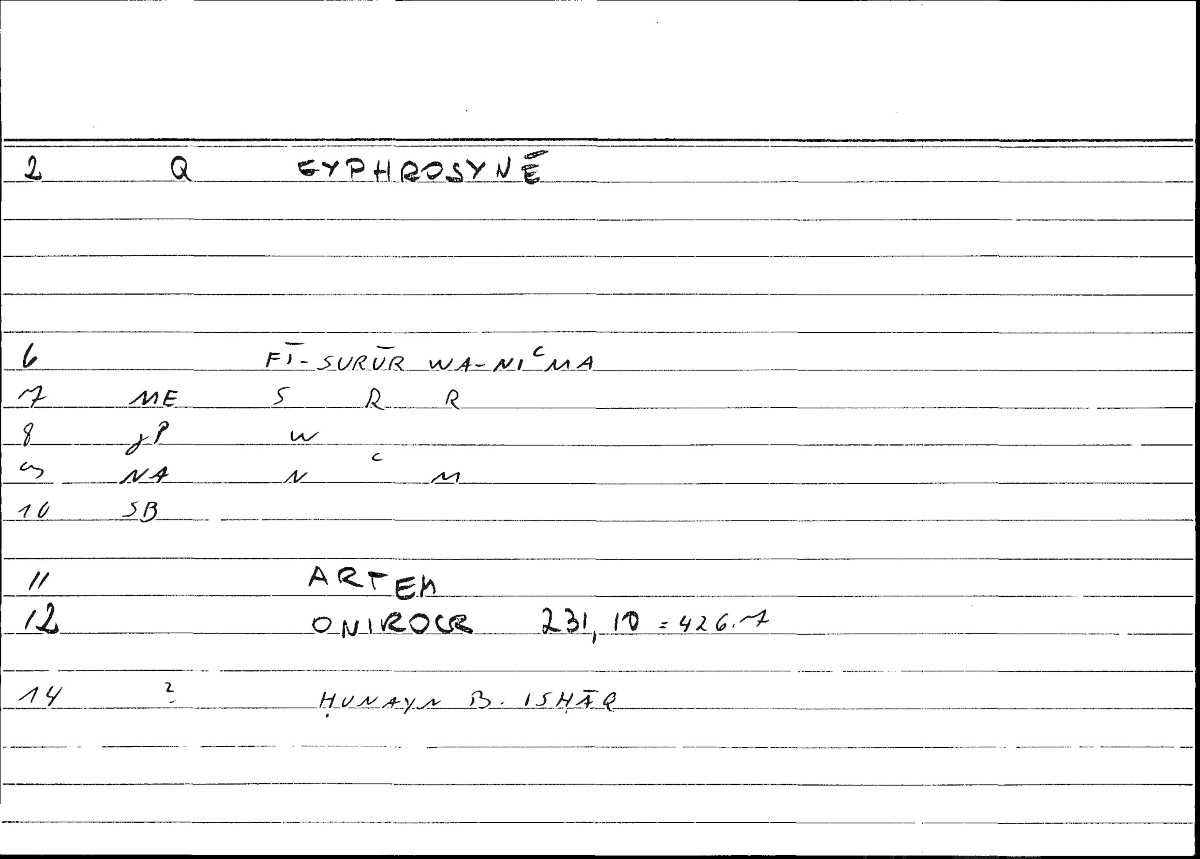 2 Q EYPHROSYNĒ
6 FĪ-SURŪR WA-NIᶜMA
7 ME S R R
8 JP W
9 NA N ᶜ M
10 SB
11 ARTEM
12 ONIROCR 231,10 = 426.7
14 2 ḤUNAYN B. ISḤĀQ